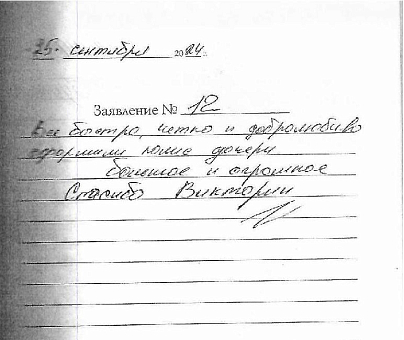 25. сентября 2024.
Заявление № 12
Все быстро, четко и добролюбиво
оформили дочери
большое и огромное
Спасибо Виктории